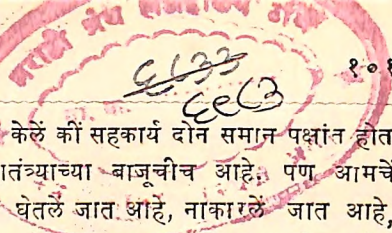 मराठी ग्रंथ
केलें कीं सहकार्य दोन समान पक्षांत होत
ातंत्र्याच्या बाजूचीच आहे. पण आमचें
घेतलें जात आहे, नाकारलें जात आहे,